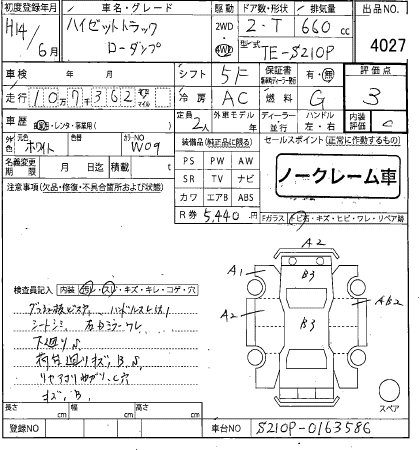 初度登録年月 車名・グレード 駆動 ドア数・形状 排気量 出品NO.
H14/6月 ハイゼットトラック ローダンプ 2WD 4WD 2・T 660 cc
型式 TE-S210P 4027
車検 年 月 シフト 5F 保証書 有・無 評価点
走行 10万7千362 km マイル 冷房 AC 燃料 G 3
車歴 自家・レンタ・事業用( ) 定員 2人 外車モデル 年 ディーラー・並行 ハンドル 左・右 内装評価 C
外色 ホワイト 色替 カラーNO W09 装備品(純正品に限る) セールスポイント(正常に作動するもの)
名義変更期限 月 日迄 積載 t PS PW AW
注意事項(欠品・修復・不具合箇所および状態) SR TV ナビ ノークレーム車
カワ エアB ABS
R券 5,440円 Fガラス トビ石・キズ・ヒビ・ワレ・リペア跡
A2
A1 B3
A2 B3 AB2
検査員記入 内装 汚レ・スレ・キズ・キレ・コゲ・穴
ハンドルスレ
シートシミ 右ドミラーワレ
下廻りS
荷台廻りキズ、B、S
キズ、B、
スペア
長さ cm 幅 cm 高さ cm
登録NO 車台NO S210P-0163586